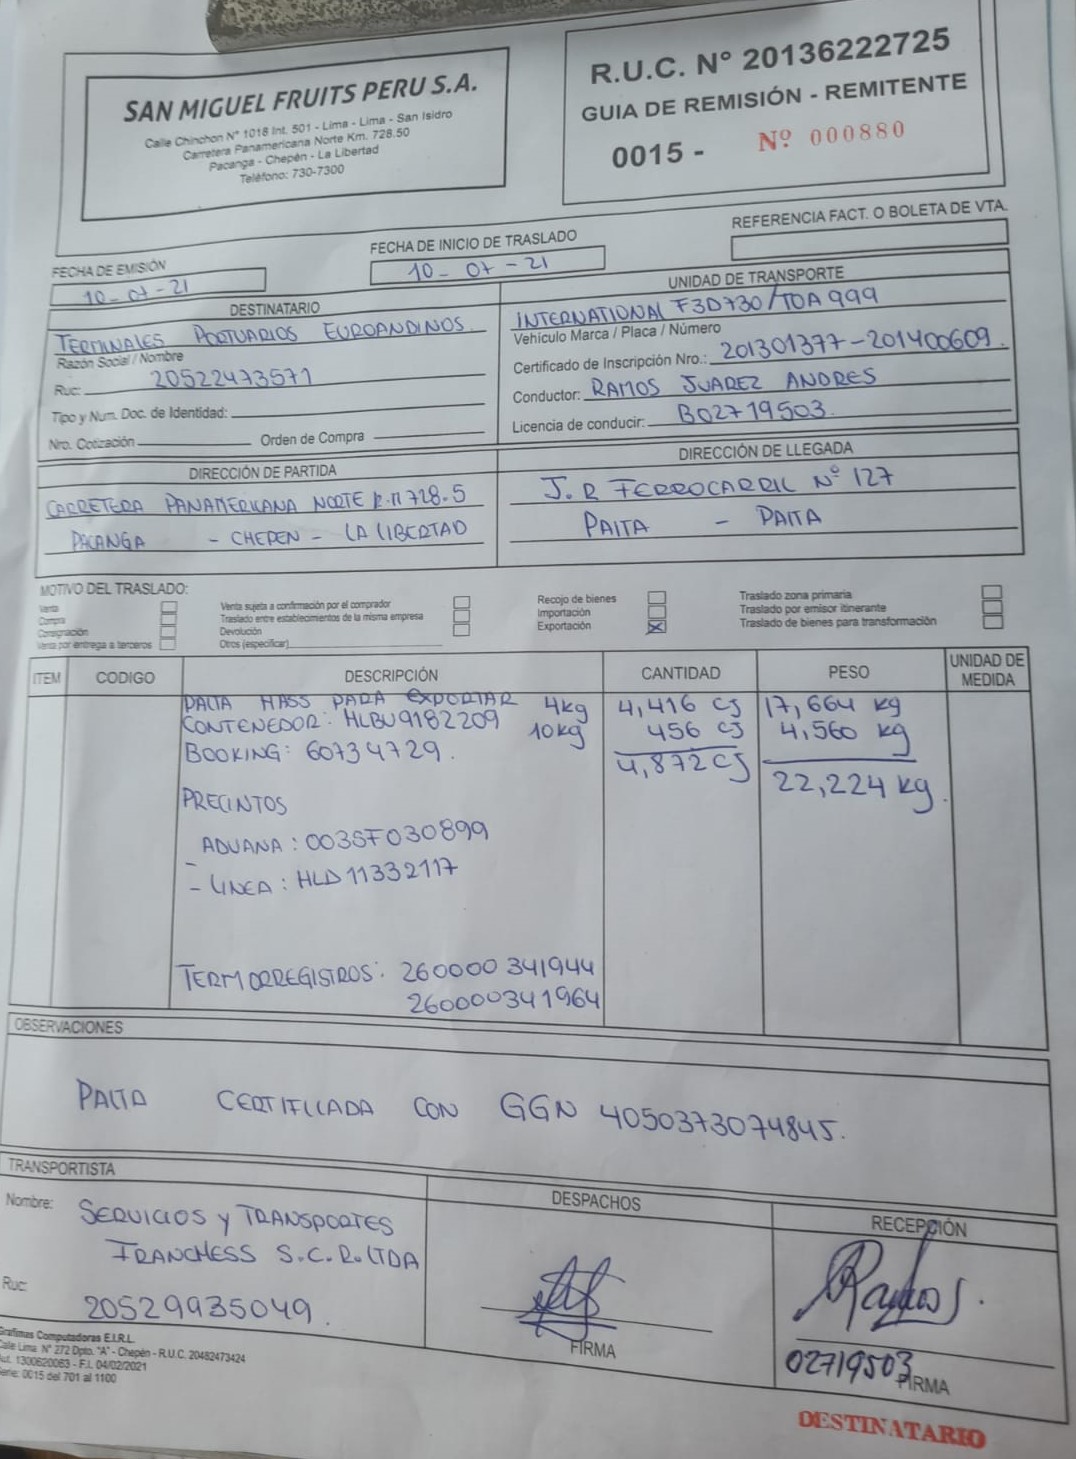 SAN MIGUEL FRUITS PERU S.A.
Calle Chinchon N° 1018 Int. 501 - Lima - Lima - San Isidro
Carretera Panamericana Norte Km. 728.50
Pacanga - Chepén - La Libertad
Teléfono: 730-7300
R.U.C. N° 20136222725
GUIA DE REMISIÓN - REMITENTE
0015 - Nº 000880
REFERENCIA FACT. O BOLETA DE VTA.
FECHA DE EMISIÓN
10-07-21
FECHA DE INICIO DE TRASLADO
10-07-21
DESTINATARIO
TERMINALES PORTUARIOS EUROANDINOS
Razón Social / Nombre
Ruc: 20522473571
Tipo y Num. Doc. de Identidad:
Nro. Cotización Orden de Compra
UNIDAD DE TRANSPORTE
INTERNATIONAL F3D730/TOA999
Vehículo Marca / Placa / Número
Certificado de Inscripción Nro.: 201301377-201400609.
Conductor: RAMOS JUAREZ ANDRES
Licencia de conducir: B02719503.
DIRECCIÓN DE PARTIDA
CARRETERA PANAMERICANA NORTE K.M 728.5
PACANGA - CHEPEN - LA LIBERTAD
DIRECCIÓN DE LLEGADA
J.R FERROCARRIL N° 127
PAITA - PAITA
MOTIVO DEL TRASLADO:
Venta
Compra
Consignación
Venta por entrega a terceros
Venta sujeta a confirmación por el comprador
Traslado entre establecimientos de la misma empresa
Devolución
Otros (especificar)
Recojo de bienes
Importación
Exportación X
Traslado zona primaria
Traslado por emisor itinerante
Traslado de bienes para transformación
ITEM CODIGO DESCRIPCIÓN CANTIDAD PESO UNIDAD DE MEDIDA
PALTA HASS PARA EXPORTAR 4kg 4,416 CJ 17,664 kg
CONTENEDOR: HLBU9182209 10kg 456 CJ 4,560 kg
BOOKING: 60734729. 4,872 CJ 22,224 kg.
PRECINTOS
ADUANA: 003SF030899
- LINEA: HLD11332117
TERMORREGISTROS: 260000341944
260000341964
OBSERVACIONES
PALTA CERTIFICADA CON GGN 4050373074845.
TRANSPORTISTA
Nombre: SERVICIOS Y TRANSPORTES
FRANCHESS S.C.R.LTDA
Ruc: 20529935049.
DESPACHOS
FIRMA
RECEPCIÓN
Ramos J.
02719503
FIRMA
Grafimas Computadoras E.I.R.L.
Calle Lima N° 272 Dpto. "A" - Chepén - R.U.C. 20482473424
Aut. 1300620063 - F.I. 04/02/2021
Serie: 0015 del 701 al 1100
DESTINATARIO